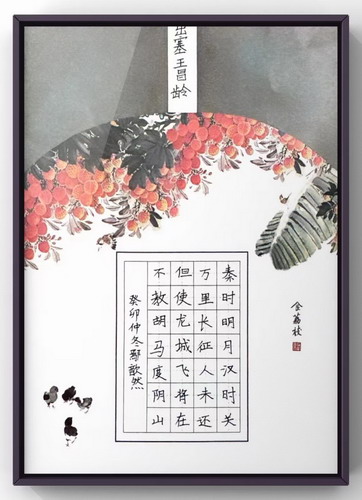 出塞王昌龄
秦时明月汉时关
万里长征人未还
但使龙城飞将在
不教胡马度阴山
癸卯仲冬鄢歆然
荔枝